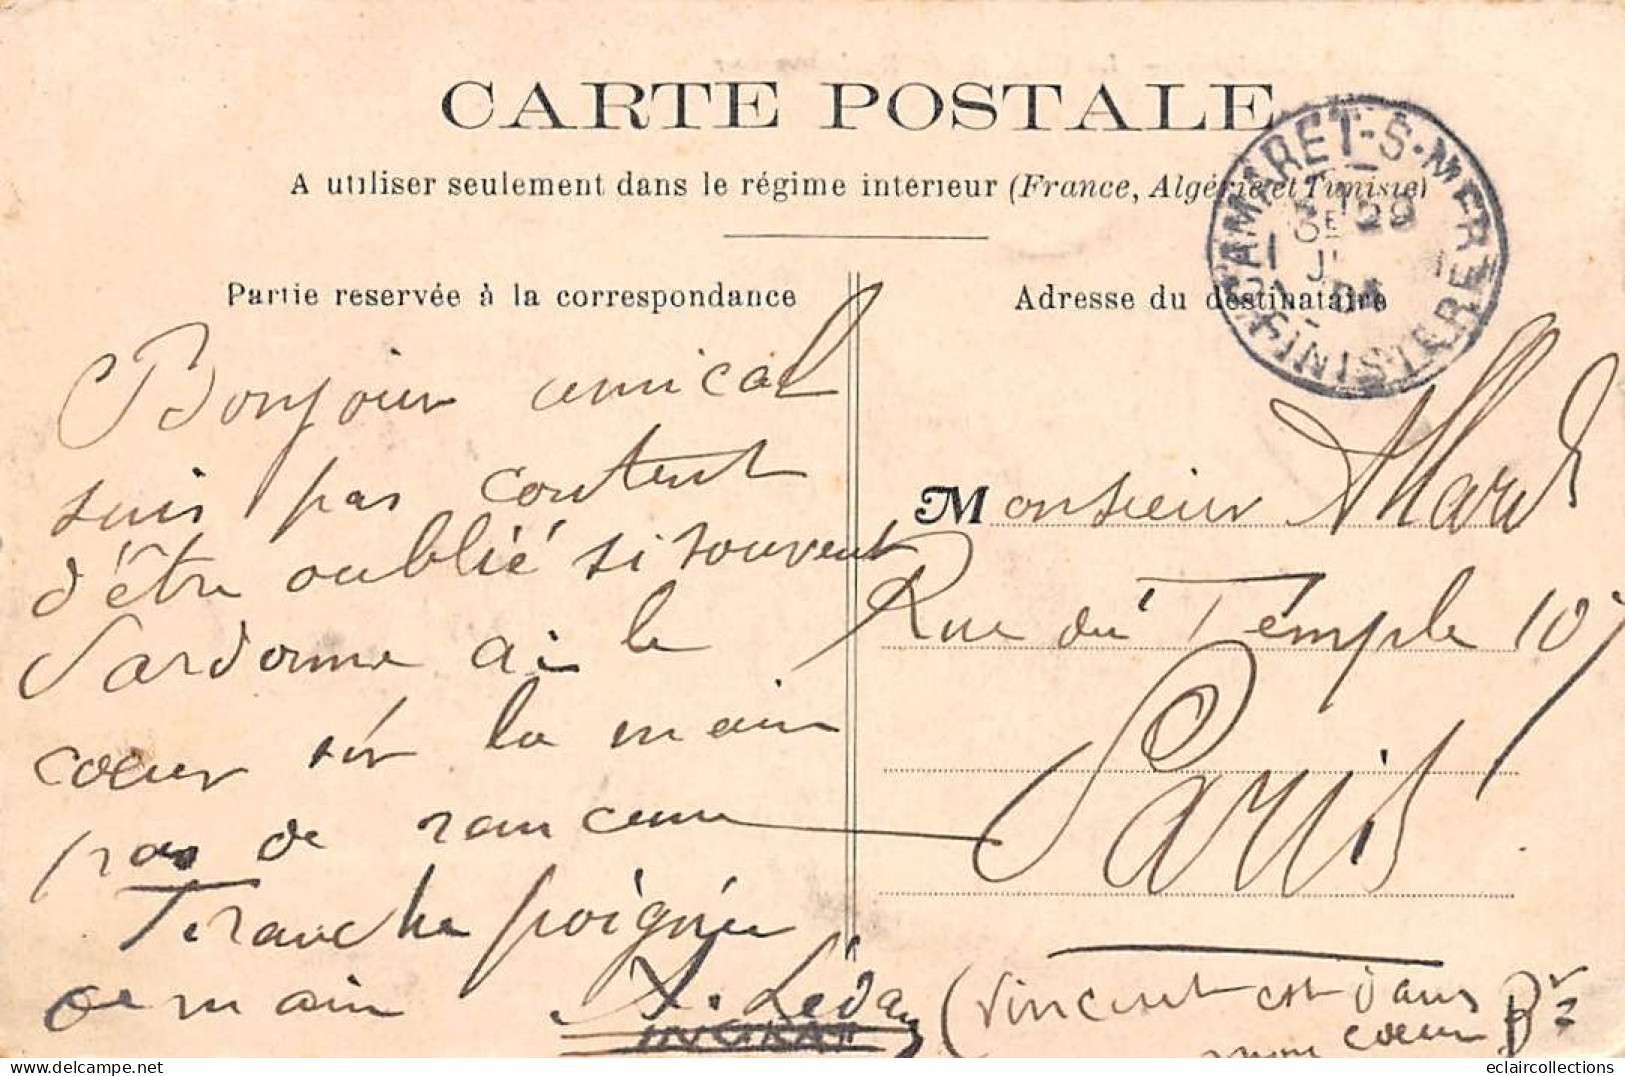 CARTE POSTALE
A utiliser seulement dans le régime intérieur (France, Algérie et Tunisie)
CAMARET-S-MER
FINISTÈRE
Partie reservée à la correspondance
Adresse du destinataire
Bonjour amical
suis pas content
d'être oublié si souvent
Pardonne ai le
cœur sur la main
pas de rancune
Franche poignée
de main
Monsieur Allard
Rue du Temple 107
Paris
(Vincent est dans
mon coeur
eclaircollections